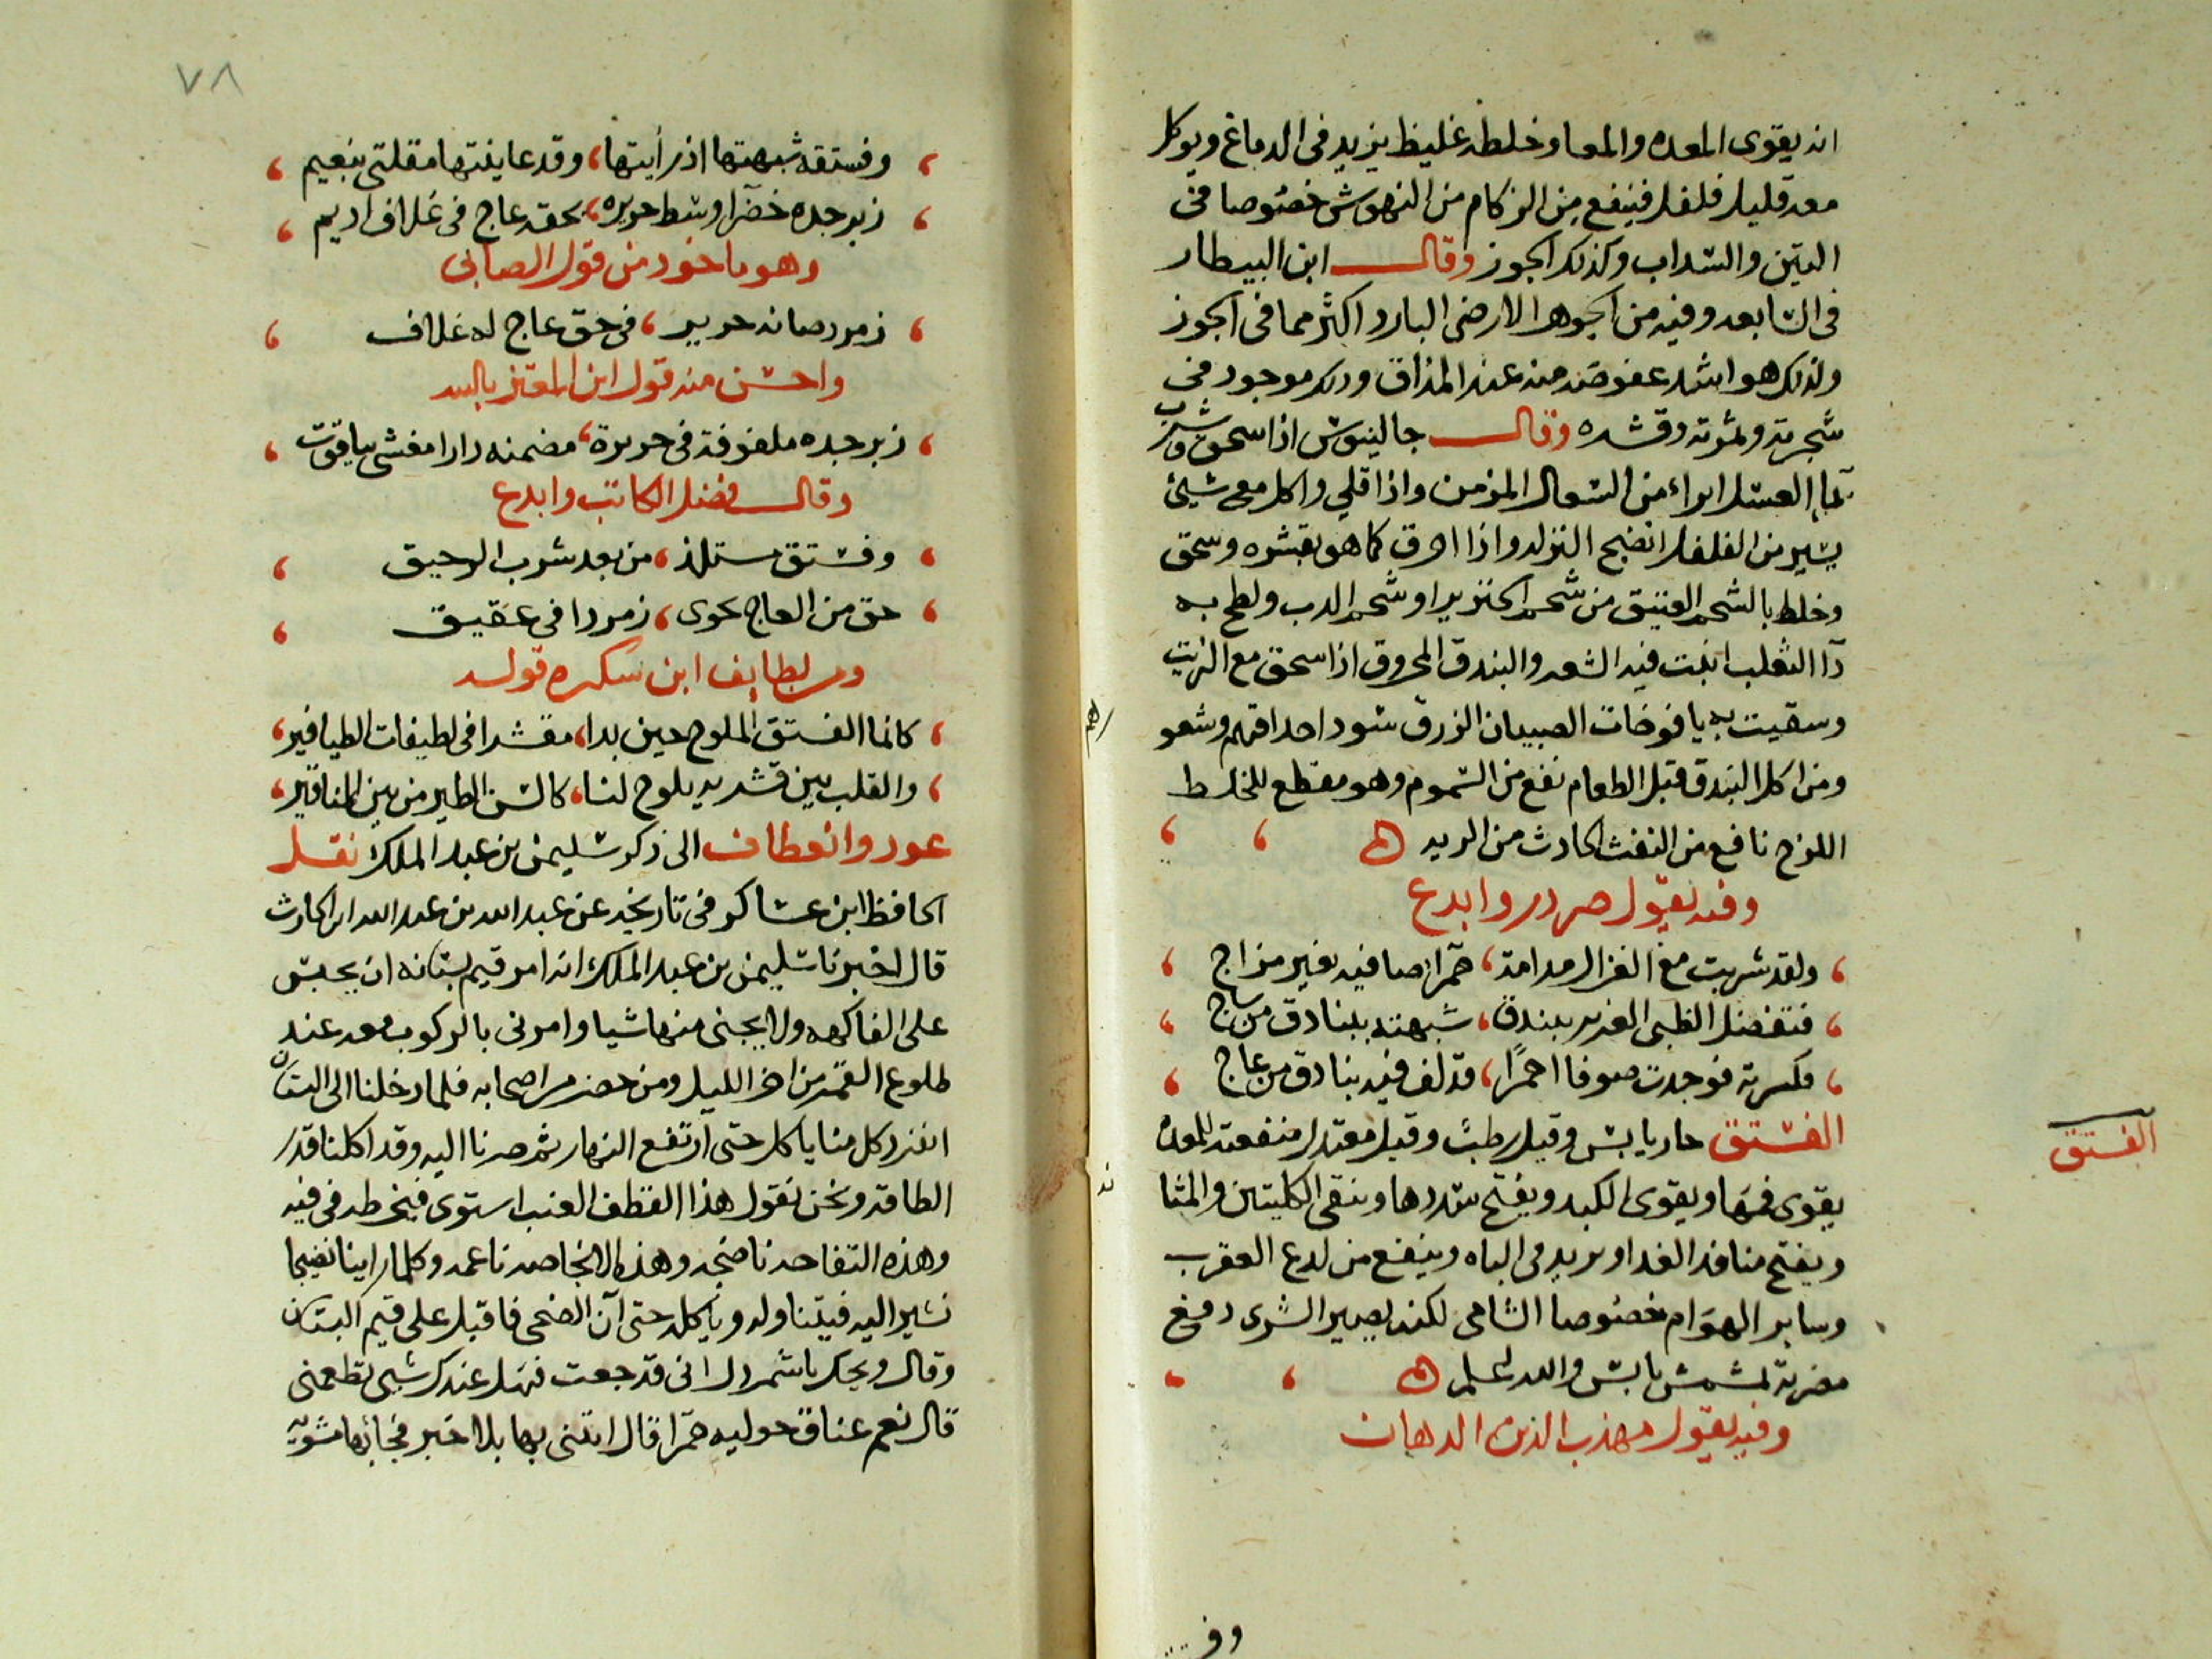 انه يقوى المعده والمعا وخلطه غليظ يزيد فى الدماغ ويوكل
معه قليل فلفل فينفع من الزكام من النهوش خصوصا فى
التين والسداب وكذلك الجوز وقال ابن البيطار
فى السابعه وفيه من الجوهر الارضى البارد اكثر مما فى الجوز
ولذلك هو اشد عفوصه منه عند المذاق وذلك موجود فى
شجرته وثمرته وقشره وقال جالينوس اذا سحق وشرب
بماء العسل ابراء من السعال المزمن واذا قلي واكل معه شيئ
يسير من الفلفل انضج النزله واذا احرق كما هو بقشره وسحق
وخلط بالشحم العتيق من شحم الخنزير او شحم الدب ولطخ به
دآ الثعلب انبت فيه الشعر والبندق المحروق اذا سحق مع الزيت
وسقيت به يافوخات الصبيان الزرق سود احداقهم وشعو
ومن اكل البندق قبل الطعام نفع من السموم وهو مقطع للخلط
اللزج نافع من النفث الحادث من الريه
وفيه يقول صردر وابدع
ولقد شربت مع الغزال مدامة، حمرا صافيه بغير مزاج
فتفضل الظبى الغرير ببندق، شبهته ببنادق من ساج
فكسرته فوجدت صوفا احمرًا، قد لف فيه بنادق من عاج
الفستق حار يابس وقيل رطب وقيل معتدل منفعته للمعده
يقوى فمها ويقوى الكبد ويفتح سددها وينقى الكليتين والمثا
ويفتح منافذ الغدا ويزيد فى الباه وينفع من لدع العقرب
وساير الهوام خصوصا الشامى لكنه يصير الشرى دفع
مضرته بمشمش يابس والله اعلم
وفيه يقول مهذب الدين الدهان
الفستق
وف
٧٨
وفستقه شبهتها اذ رأيتها، وقد عاينتها مقلتى بنعيم
زبرجده خضرآ وسط حريره، بحقه عاج فى غلاف اديم
وهو ماخوذ من قول الصابى
زمرد صانه حرير، فى حق عاج له غلاف
واحسن منه قول ابن المعتز بالله
زبرجده ملفوفة فى حريرة، مضمنه درا مغشى بياقوت
وقال فضل الكاتب وابدع
وفستق مستلذ، من بعد شرب الرحيق
حق من العاج يحوى، زمردا فى عقيق
ومن لطايف ابن سكره قوله
كانما الفستق المملوح حين بدا، مقشرا فى لطيفات الطيافير
والقلب بين قشريه يلوح لنا، كالسن الطير من بين المناقير
عود وانعطاف الى ذكر سليمن بن عبد الملك نقل
الحافظ ابن عساكر فى تاريخه عن عبد الله بن عبد الله ابن الحارث
قال اخبرنا سليمن بن عبد الملك انه امر قيم بستانه ان يحبس
على الفاكهه ولا يجنى منها شيا وامرنى بالركوب معه عند
طلوع القمر من اخر الليل ومن حضر من اصحابه فلما دخلنا الى البستان
انفرد كل منا ياكل حتى ارتفع النهار ثم صرنا اليه وقد اكلنا قدر
الطاقه ونحن نقول هذا القطف العنب استوى فيخرطه فى فيه
وهذه التفاحه ناضجه وهذه الانجاصه ناعمه وكلما راينا نضيجا
نشير اليه فيتناوله وياكله حتى آن الضحى فاقبل على قيم البستان
وقال ويحك يا شمردل انى قد جعت فهل عندك شى تطعمنى
قال نعم عناق حوليه حمرا قال ايتنى بها بلا خبز فجائها مشويه